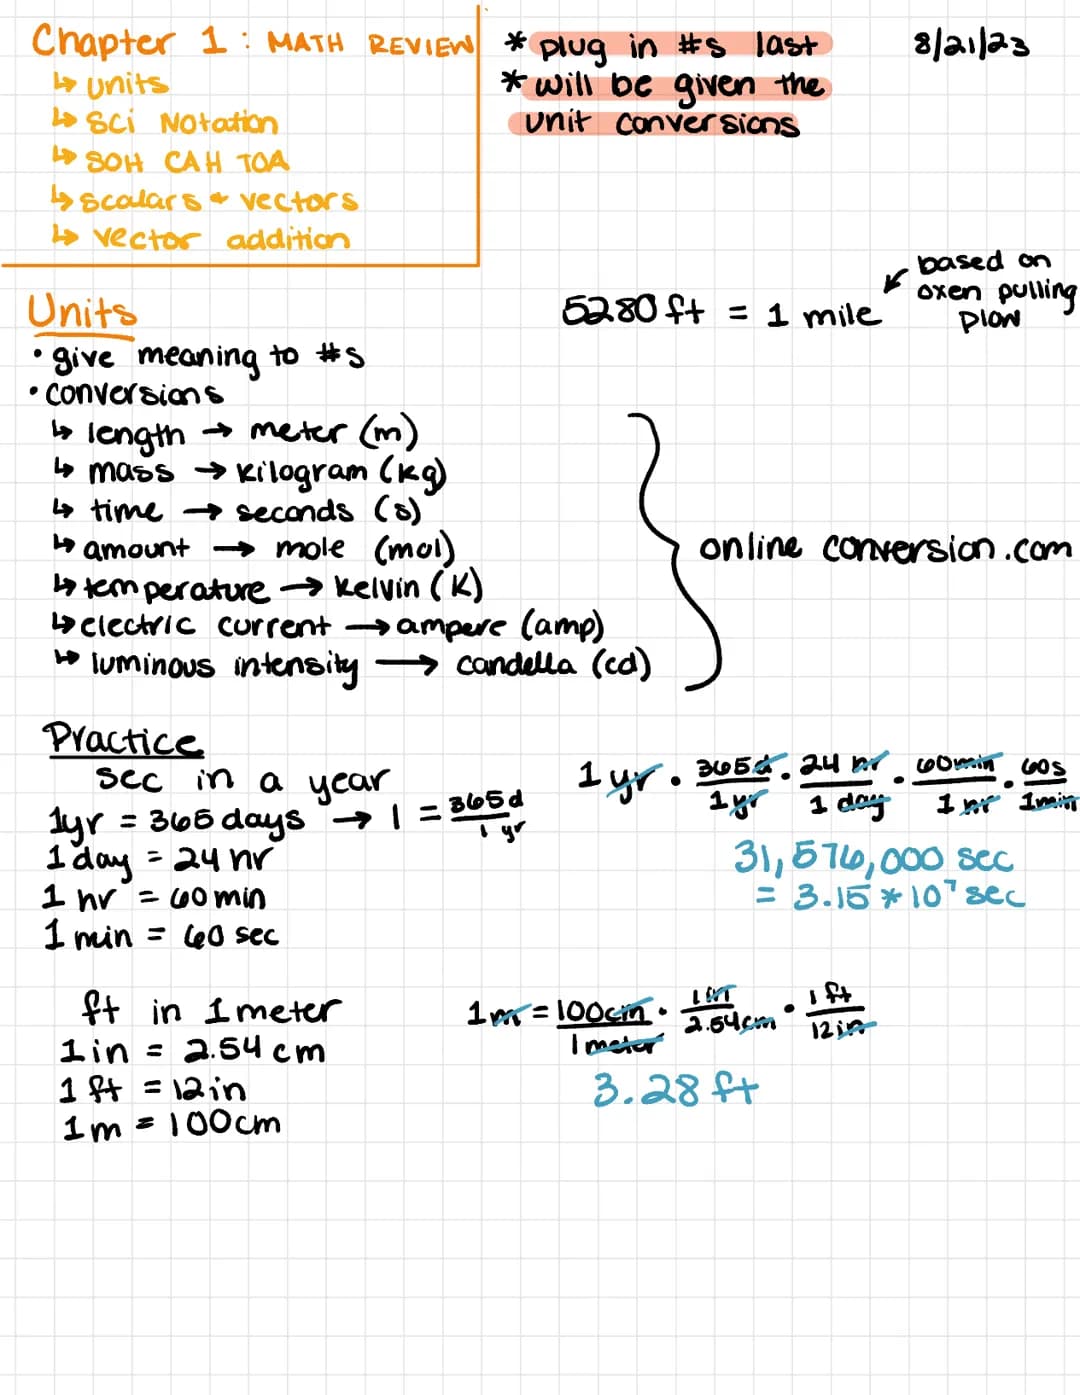 Chapter 1: MATH REVIEW
↳ units
↳ sci Notation
↳ SOH CAH TOA
↳ scalars + vectors
↳ vector addition
* plug in #s last
* will be given the
unit conversions
8/21/23
Units
• give meaning to #s
• conversions
↳ length → meter (m)
↳ mass → kilogram (kg)
↳ time → seconds (s)
↳ amount → mole (mol)
↳ temperature → kelvin (K)
↳ electric current → ampere (amp)
↳ luminous intensity → candella (cd)
5280 ft = 1 mile
based on
oxen pulling
plow
online conversion.com
Practice
sec in a year
1yr = 365 days → 1 = 365d / 1 yr
1 day = 24 hr
1 hr = 60 min
1 min = 60 sec
1 yr · 365d / 1 yr · 24 hr / 1 day · 60min / 1 hr · 60s / 1min
31,576,000 sec
= 3.15 * 10⁷ sec
ft in 1 meter
1in = 2.54 cm
1 ft = 12in
1m = 100cm
1m = 100cm / 1 meter · 1in / 2.54cm · 1 ft / 12in
3.28 ft